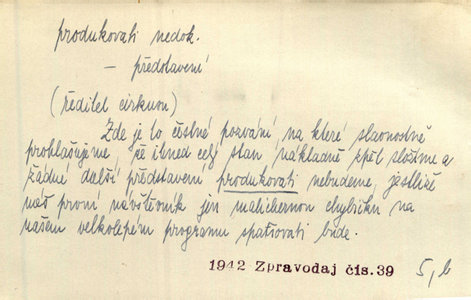 produkovati nedok.
– představení
(ředitel cirkusu)
Zde je to čestné pozvání, na které slavnostně
prohlašujeme, že ihned celý stan nákladně zpět složíme a
žádné další představení produkovati nebudeme, jestliže
náš první návštěvník jen malichernou chybičku na
našem velkolepém programu spatřovati bude.
1942 Zpravodaj čís.39
5,b